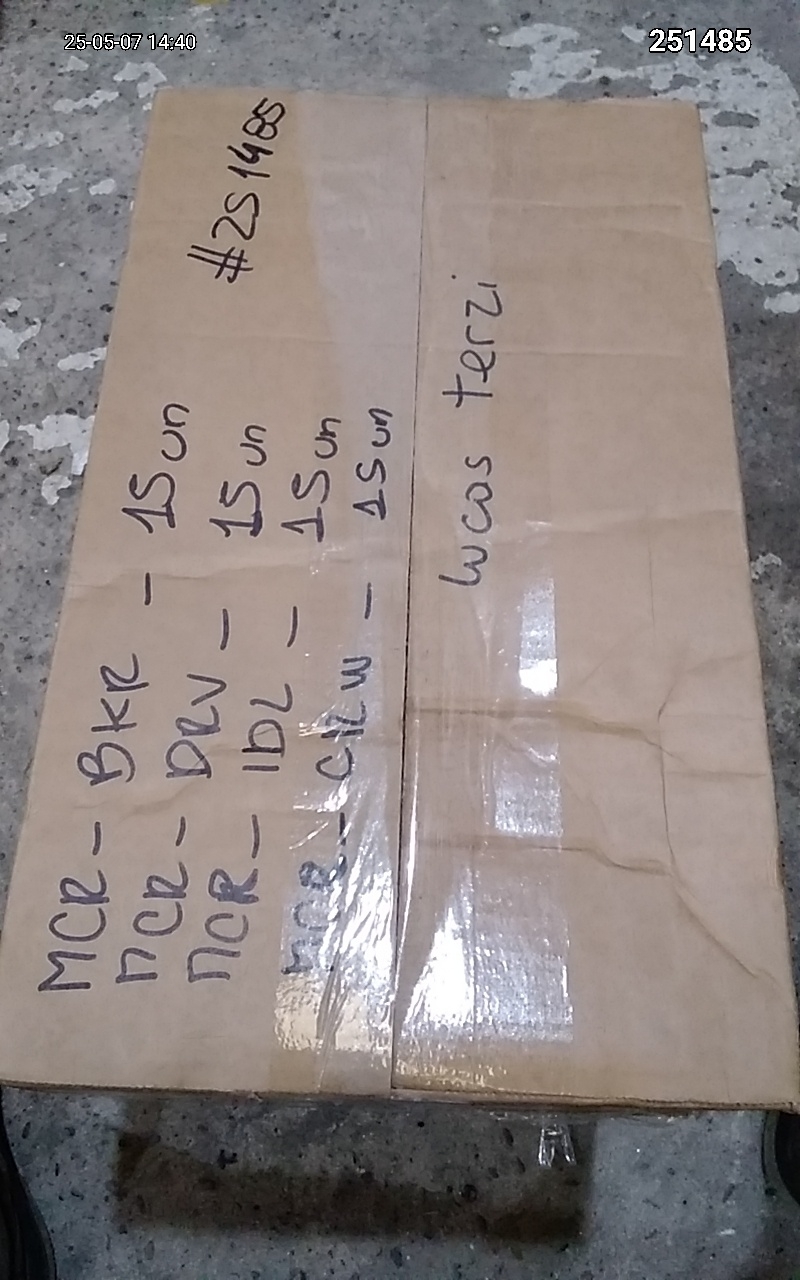 25-05-07 14:40
251485
#251485
MCR - BKR - 15 un
MCR - DRV - 15 un
MCR - IDL - 15 un
MCR - CRW - 15 un
Lucas terzi